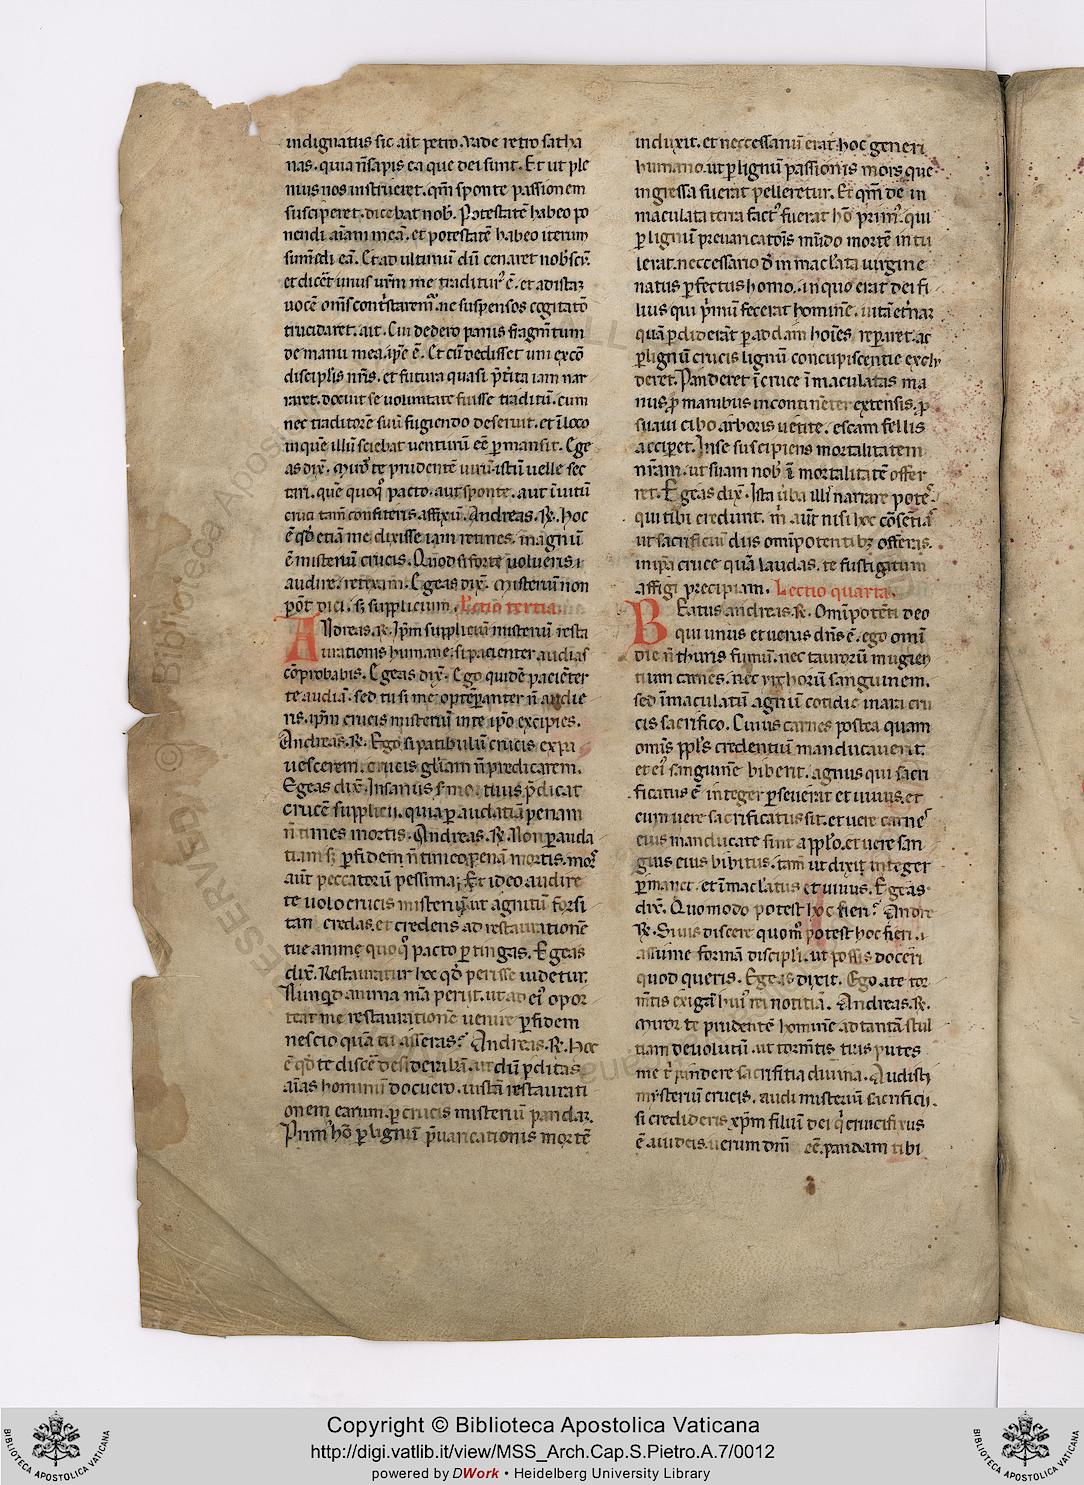 indignatus sic ait petro. Vade retro satha
nas. quia n̄ sapis ea que dei sunt. Et ut ple
nius nos instrueret. qm̄ sponte passionem
susciperet. dicebat nob̄. Potestatē habeo po
nendi aīam meā. et potestatē habeo iterum
sumēdi eā. Et ad ultimū dū cenaret nobiscū.
et dicēt unus ur̄m me traditur᾽ ē. et ad istaꝫ
uocē om̄s
ne suspensos cogitatō
trucidaret. ait. Cui dedero panis fragm̄tum
de manu mea ip̄e ē. Et cū dedisset uni ex cō
discipl̓is nr̄is. et futura quasi p̄t̓ita iam nar
raret. docuit se uoluntate fuisse traditū. cum
nec traditorē suū fugiendo deseruit. et ī loco
in quē illū sciebat uenturū eē ꝑmansit. Ege
as dix̄. Miror te prudentē uirū istū uelle sec
tari. quē quoq᾽ pacto. aut sponte. aut īuitū
cruci tam̄ confiteris affixū. Andreas. R̄. hoc
ē qd̓ etiā me dixisse iam retines. magnū
ē misteriū crucis. Quod si forte uolueris
audire. retexam. Egeas dix̄. Misteriū non
pōt dici. sꝫ supplicium. Lectio tertia.
Andreas. R̄. Ip̄m suppliciū misteriū resta
urationis humane. si pacienter audias
cōprobabis. Egeas dix̄. Ego quidē paciēter
te audiā. sed tu si me
n̄ audie
ris. ip̄m crucis misteriū in te ip̄o excipies.
Andreas. R̄. Ego si patibulū crucis expa
uescerem. crucis gl̓iam n̄ predicarem.
Egeas dix̄. Insanus
p̄dicat
crucē supplicii. quia ꝑ audatiā penam
n̄ times mortis. Andreas. R̄. Non ꝑ auda
tiam sꝫ ꝑ fidem n̄ timeo penā mortis. mors
aūt peccatorū pessima; Et ideo audire
te uolo crucis misteriū. ut agnitū forsi
tan credas. et credens ad restaurationē
tue anime quoq᾽ pacto ꝑtingas. Egeas
dix̄. Restauratur hoc qd̓ perisse uidetur.
Nunqd̓ anima m̄a periit. ut ad ei᾽ opor
teat me restaurationē uenire ꝑ fidem
nescio quā tu asseras? Andreas. R̄. hoc
ē qd̓ te discē desiderabā. ut dū ꝑditas
aīas hominū docuero. istā restaurati
onem earum. ꝑ crucis misteriū pandaꝫ.
Prim᾽ hō ꝑ lignū p̄uaricationis mortē
induxit. et neccessariū erat hoc generi
humano. ut ꝑ lignū passionis mors que
ingressa fuerat pelleretur. Et qm̄ de in
maculata terra fact᾽ fuerat hō prim᾽. qui
ꝑ lignū preuaricatōis mūdo mortē intu
lerat. neccessario
inmacl̓ata uirgine
natus ꝑfectus homo. in quo erat dei fi
lius qui p̓mū fecerat hominē. uitā et̓naꝫ
quā ꝑdiderāt ꝑ addam hoīes reꝑaret. ac
ꝑ lignū crucis lignū concupiscentie exclu
deret. Panderet ī cruce īmaculatas ma
nus. ꝓ manibus incontinēter extensis. ꝓ
suaui cibo arboris uetite. escam fellis
acciperet. In se suscipiens mortalitatem
nr̄am. ut suam nob̄ īmortalitatē offer
ret. Egeas dix̄. Ista u̓ba illi᾽ narrare potes᾽.
qui tibi credunt. m̓ aūt nisi hoc cōsētias
ut sacrificiū diis omīpotentibꝫ offeras.
in ip̄a cruce quā laudas. te fustigatum
affigi precipiam. Lectio quarta.
Beatus andreas. R̄. Omīpotēti deo
qui unus et uerus dn̄s ē. ego omī
die n̄ thuris fumū. nec taurorū mugien
tium carnes. nec yrchorū sanguinem.
sed īmaculatū agnū cotidie in ara cru
cis sacrifico. Cuius carnes postea quam
om̄is ppl̓s credentiū manducauerit.
et ei᾽ sanguinē biberit. agnus qui sacri
ficatus ē integer ꝑseuerat et uiuus. et
cum uere sacrificatus sit. et uere carnes
eius manducate sint a ppl̓o. et uere san
guis eius bibitus. tam̄ ut dixit integer
ꝑmanet. et īmacl̓atus et uiuus. Egeas
dix̄. Quomodo potest hoc fieri? Andre
R̄. Si uis discere quom̄ potest hoc fieri.
assume formā discipl̓i. ut possis doceri
quod queris. Egeas dixit. Ego a te tor
mētis exigā hui᾽ rei notitiā. Andreas. R̄.
Miror te prudentē hominē ad tantā stul
tiam deuolutū. ut tormētis tuis putes
me t̓ pandere sacrifitia diuina. Audisti
mysteriū crucis. audi misteriū sacrificii.
si credideris xp̄m filiū dei q̓ crucifixus
ē a iudeis. uerum dm̄ eē. pandam tibi
Copyright © Biblioteca Apostolica Vaticana
http://digi.vatlib.it/view/MSS_Arch.Cap.S.Pietro.A.7/0012
powered by DWork • Heidelberg University Library
BIBLIOTECA APOSTOLICA VATICANA
BIBLIOTECA APOSTOLICA VATICANA